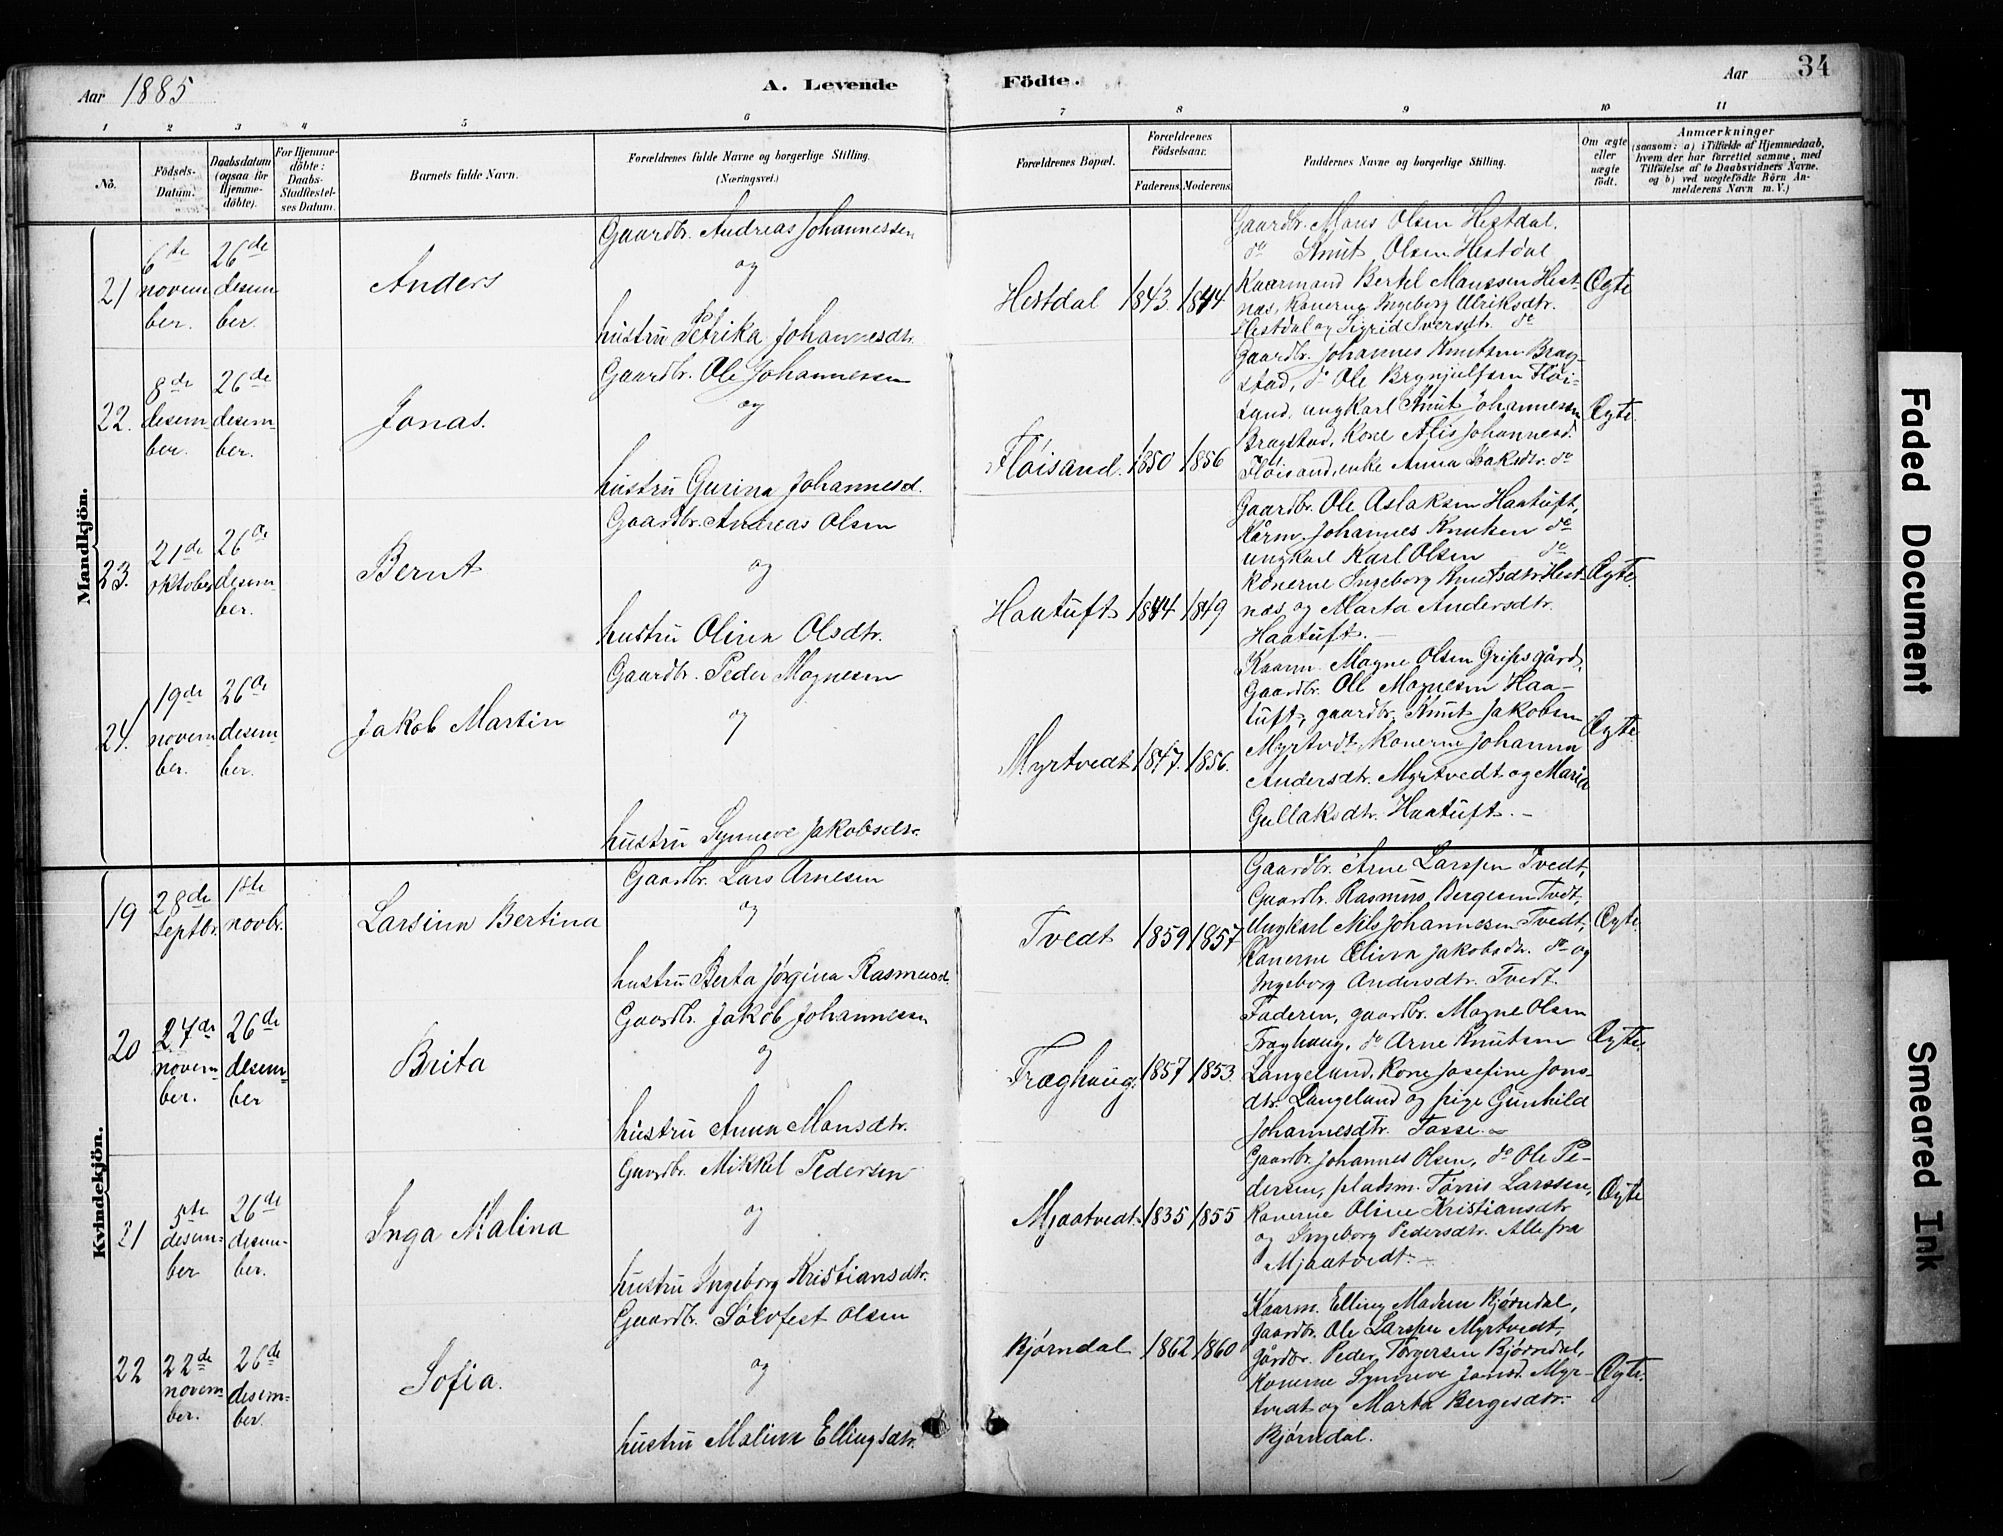 Aar 1885
A. Levende
Födte.
Aar
34
1 2 3 4 5 6 7 8 9 10 11
No.
Födsels-
Datum.
Daabsdatum
(ogsaa for
Hjemme-
döbte).
For Hjemme-
döbte:
Daabs-
Stadfæstel-
ses Datum.
Barnets fulde Navn.
Forældrenes fulde Navne og borgerlige Stilling.
(Næringsvei.)
Forældrenes Bopæl.
Forældrenes
Födselsaar.
Faderens. Moderens.
Faddernes Navne og borgerlige Stilling.
Om ægte
eller
uægte
født.
Anmærkninger
(saasom: a) i Tilfælde af Hjemmedaab,
hvem der har forrettet samme, med
Tilföielse af to Daabsvidners Navne.
og b) ved uægtefödte Börn An-
melderens Navn m. V.)
Mandkjön.
21
6te
novem
ber.
26de
desem
ber.
Anders
Gaardbr. Andreas Johannessen
og
hustru Petrika Johannesdtr.
Hestdal
1843. 1844
Gaardbr. Mons Olsen Hestdal.
do Knut Olsen Hestdal
Kaarmand Bertel Monssen Hest-
næs, Konerne Ingeborg Ulriksdtr.
Hestdal og Sigrid Iversdtr. do
Ægte
22.
8de
desem-
ber.
26de
desem-
ber.
Jonas.
Gaardbr. Ole Johannessen
og
hustru Gurina Johannesd.
Fløisand.
1850 1856
Gaardbr. Johannes Knutsen Brag-
stad, do Ole Brynjulfsen Fløi-
sand, ungkarl Knut Johannessen
Bragstad, Kone Alis Johannesd.
Fløisand, enke Anna Isaksdtr. do
Ægte.
23.
21de
oktober
26de
desem-
ber.
Bernt
Gaardbr. Andreas Olsen
og
hustru Olina Olsdtr.
Haatuft
1844 1849
Gaardbr. Ole Aslaksen Haatuft,
Kårm. Johannes Knutsen do
ungkarl Karl Olsen do
Konerne Ingeborg Knutsdtr Hest-
næs og Marta Andersdtr.
Haatuft.
Ægte.
24.
19de
novem-
ber.
26de
desem-
ber.
Jakob Martin
Gaardbr. Peder Magnesen
og
hustru Synneve Jakobsdtr.
Myrtvedt
1847. 1856.
Kaarm. Magne Olsen Gripsgård,
Gaardbr. Ole Magnesen Haa-
tuft, gaardbr. Knut Jakobsen
Myrtvedt, Konerne Johanna
Andersdtr. Myrtvedt og Maria
Gullaksdtr. Haatuft.
Ægte
Kvindekjön.
19
28de
Septbr.
1ste
novbr.
Larsina Bertina
Gaardbr. Lars Arnesen
og
hustru Berta Jørgina Rasmusd.
Tvedt
1859 1857
Gaardbr. Arne Larssen Tvedt,
Gaardbr. Rasmus Bergesen Tvedt,
Ungkarl Nils Johannesen Tvedt,
Konerne Olivia Jakobsdtr. do og
Ingeborg Andersdtr. Tvedt.
Ægte.
20
27de
novem-
ber.
26de
desem-
ber
Brita
Gaardbr. Jakob Johannessen
og
hustru Anna Monsdtr.
Træghaug.
1857 1853.
Faderen, gaardbr. Magne Olsen
Træghaug, do Arne Knutsen
Langeland, Kone Josefine Jons-
dtr. Langeland og pige Gunhild
Johannesdtr. Fosse.
Ægte.
21
5te
desem-
ber
26de
desem-
ber.
Inga Malina
Gaardbr. Mikkel Pedersen
og
hustru Ingeborg Kristiansdtr.
Mjaatvedt
1835 1855
Gaardbr. Johannes Olsen, do Ole Pe-
dersen, pladsm. Tørris Larssen,
Konerne Oline Kristiansdtr
og Ingeborg Pedersdtr. Alle fra
Mjaatvedt.
Ægte
22
22de
novem-
ber.
26de
desem-
ber.
Sofia.
Gaardbr. Sølvfest Olsen
og
hustru Malina Ellingsdtr.
Bjørndal
1862 1860
Kaarm. Elling Madsen Bjørndal,
Gaardbr. Ole Larssen Myrtvedt,
Gårdbr. Peder Torgersen Bjørndal,
Konerne Synneve Jonsd. Myr-
tvedt og Marta Bergesdtr.
Bjørndal.
Ægte.
Faded Document
Smeared Ink